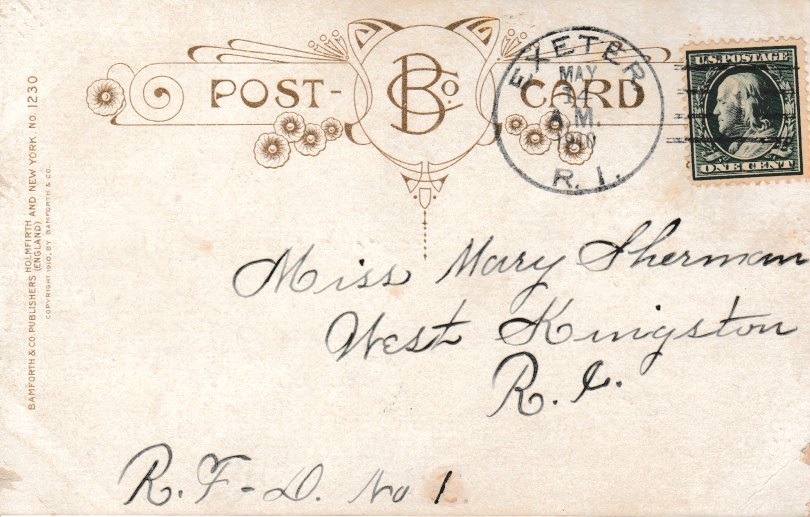 BAMFORTH & CO. PUBLISHERS HOLMFIRTH AND NEW YORK. NO. 1230
(ENGLAND)
COPYRIGHT 1910, BY BAMFORTH & CO.
POST-
B Co.
CARD
EXETER
MAY
14
A.M.
1910
R. I.
U.S. POSTAGE
ONE CENT
Miss Mary Sherman
West Kingston
R. I.
R. F-D. No 1.